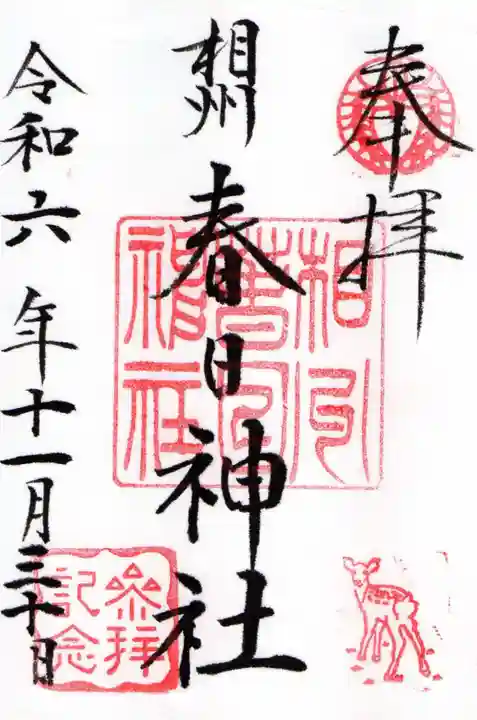 奉拝
相州
春日神社
令和六年十一月三十日
相州
春日
神社
参拝
記念